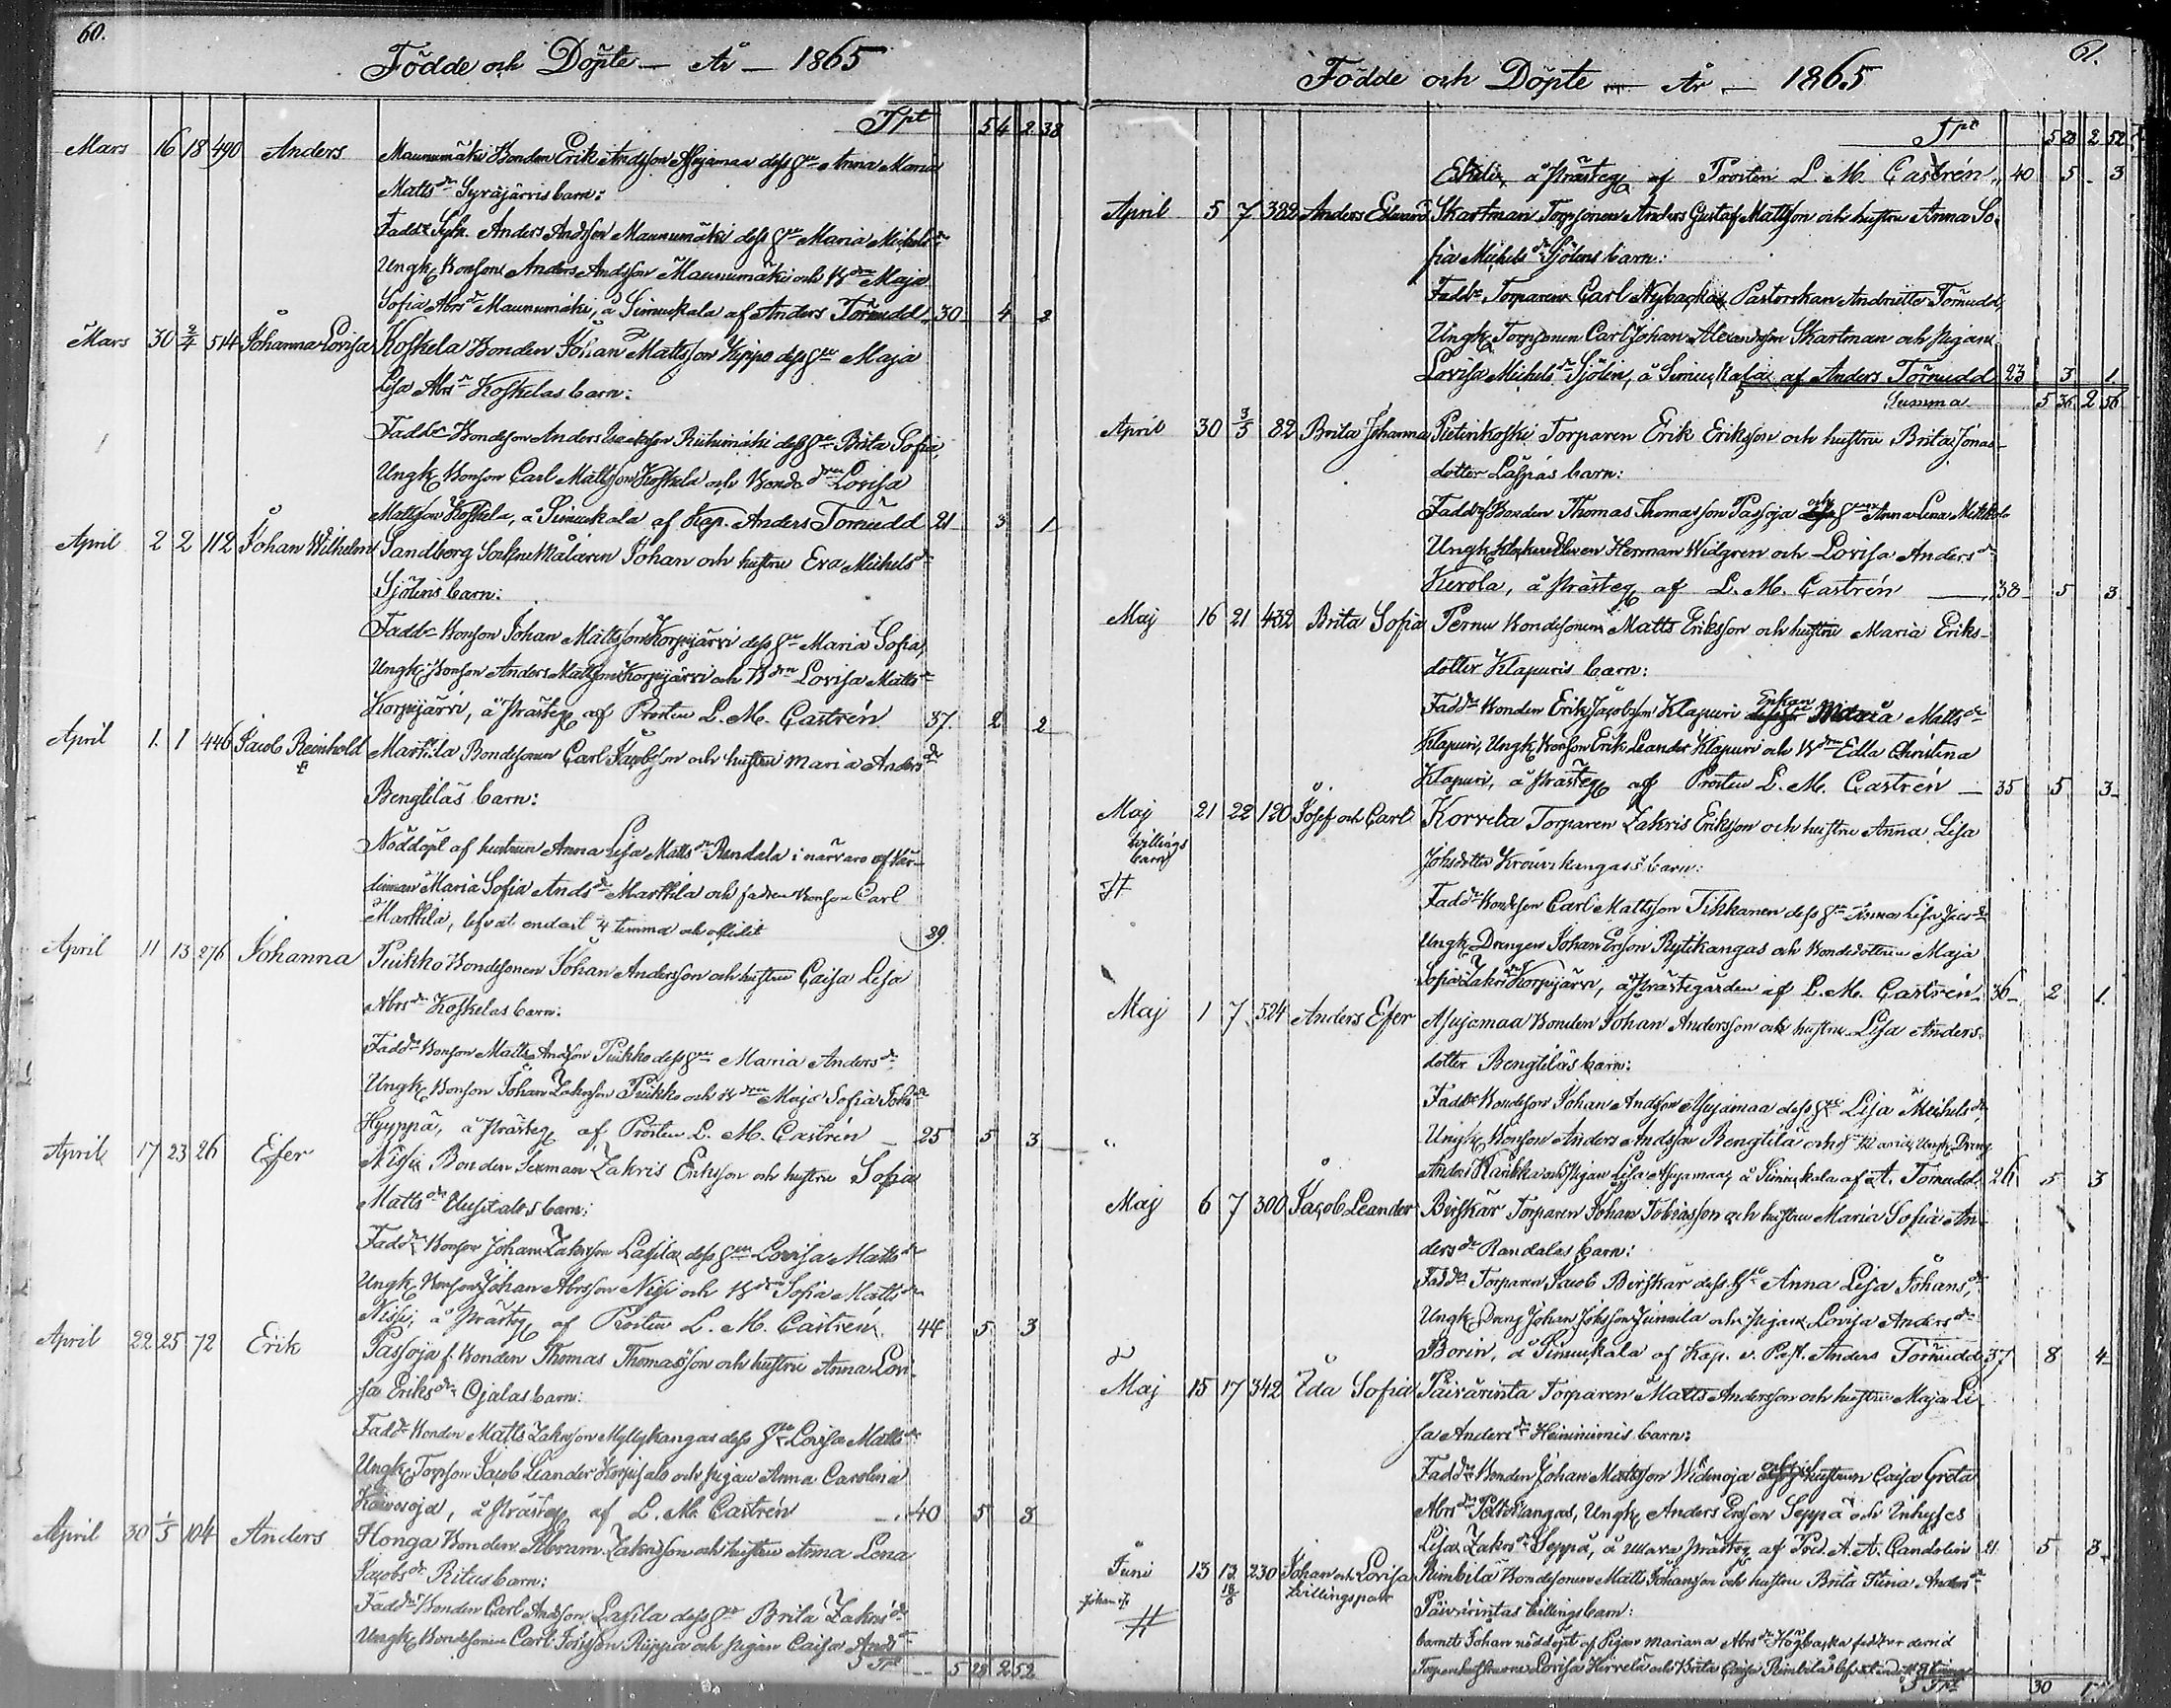 60.
Födde och Döpte — År — 1865
Tpt 5 4 2 38
Mars 16 18 490 Anders Maunumäki Bonden Erik Andsson Asujamaa dess hu Anna Maria
Matts dr Syväjärvis barn:
Fadd. Anders Andsson Maunumäki dess hu Maria Michels dr
Ungk. Bonson Anders Andsson Maunumäki och B dren Maja
Sofia Abrs dr Maunumäki, å Simukala af Anders Törnudd 30 4 2
Mars 30 2/4 514 Johanna Lovisa Koskela Bonden Johan Mattsson dess hu Maja
Lisa Abrs dr Koskelas barn:
Fadd Bondeson Anders Isaksson Riihimäki dess hu Brita Sofia,
Ungk Bonson Carl Mattsson Koskela och Bonde drn Lovisa
Mattsson Koskela, å Simukala af Kap. Anders Törnudd 21 3 1
April 2 2 112 Johan Wilhelm Sandberg Sockne Målaren Johan och hustru Eva Michels dr
Sjölins barn:
Fadd Bonson Johan Mattsson Korpijärvi dess hu Maria Sofia,
Ungk Bonson Anders Mattsson Korpijärvi och B drn Lovisa Matts dr
Korpijärvi, å Prästeg af Prosten L. M. Castrén 37. 2 2
April 1. 1 446 Jacob Reinhold Marttila Bondesonen Carl Jacobsson och hustru Maria Anders dr
Bengtiläs barn:
Nöddöpt af hustrun Anna Lisa Matts dr Randala i närvaro af
Maria Sofia Ands dr Marttila och fadren Bonson Carl
Marttila, lefvat endast 4 timma och aflidit 29.
April 11 13 276 Johanna Puikko Bondesonen Johan Andersson och hustru Caisa Lisa
Abrs dr Koskelas barn:
Fadd Bonson Matts Andson Puikko dess hu Maria Anders dr
Ungk Bonson Johan Zakrsson Puikko och B dren Maja Sofia Johs dr
Hyyppä, å Prästeg af Prosten L. M. Castrén 25 5 3
April 17 23 26 Efer Nissi Bonden Zakris Eriksson och hustru Sofia
Matts dr Uusitalos barn:
Fadd Bonson Johan Zakrsson Lassila dess hu Lovisa Matts dr
Ungk Bonson Johan Abrsson Nisji och B drn Sofia Matts dr
Nisji, å Prästeg af Prosten L. M. Castrén 44 5 3
April 22 25 72 Erik Passoja f. Bonden Thomas Thomasson och hustru Anna Lovi-
sa Eriks dr Ojalas barn:
Fadd Bonden Matts Zakrsson Myllykangas dess hu Lovisa Matts dr
Ungk Torpson Jacob Leander Korpisalo och pigan Anna Carolina
Kaivosoja, å Prästeg af L. M. Castrén 40 5 3
April 30 1/5 104 Anders Honga Bonden Abram Zakrsson och hustru Anna Lena
Jacobs dr Ritus barn:
Fadd Bonden Carl Andsson Lassila dess hu Brita Zakris dr
Ungk Bondesonen Carl Johsson Ruppa och pigan Caisa Ands dr
Tpt 5 28 2 52
61.
Födde och Döpte — År — 1865
Tpt 5 28 2 52
å Prästeg af Prosten L. M. Castrén 40 5 3
April 5 7 382 Anders Edward Skartman Torpsonen Anders Gustaf Mattsson och hustru Anna So-
fia Michels dr Sjölins barn:
Fadd. Torparen Carl Nybacka, Pastorskan Andriette Törnudd,
Ungk Torpsonen Carl Johan Alexandsson Skartman och pigan
Lovisa Michels dr Sjölin, å Simukala af Anders Törnudd 23 3 1
Summa 5 36 2 56
April 30 3/5 82 Brita Johanna Pietinkoski Torparen Erik Eriksson och hustru Brita Jonas-
dotter Läspäs barn:
Fadd Bonden Thomas Thomasson Passoja och hun Anna Lena
Ungk Herman Widgren och Lovisa Anders dr
Kerola, å Prästeg af L. M. Castrén 38 5 3
Maj 16 21 432 Brita Sofia Pernu Bondesonen Matts Eriksson och hustru Maria Eriks-
dotter Klapuris barn:
Fadd Bonden Erik Jacobsson Klapuri Enkan Maria Matts dr
Klapuri, Ungk Bonson Erik Leander Klapuri och B drn Edla Christina
Klapuri, å Prästeg af Prosten L. M. Castrén 35 5 3
Maj 21 22 120 Josef och Carl Korvela Torparen Zakris Eriksson och hustru Anna Lisa
tvillings
barn
Johsdotter barn:
Fadd Bondson Carl Mattsson Tikkanen dess hu Anna Lisa
Ungk Drengen Johan Ersson Rytikangas och Bondedottren Maja
Sofia Zakrs dr Korpijärvi, å Prästegården af L. M. Castrén 36 2 1.
Maj 1 7 524 Anders Efer Asujamaa Bonden Johan Andersson och hustru Lisa Anders-
dotter Bengtiläs barn:
Fadd Bondson Johan Andsson Asujamaa dess hu Lisa Michels dr
Ungk Bonson Anders Andsson Bengtilä och Ungk. Dreng
och Pigan Lisa Asujamaa, å Simukala af A. Törnudd 26 5 3
Maj 6 7 300 Jacob Leander Birskär Torparen Johan Tobiasson och hustru Maria Sofia An-
ders dr Randalas barn:
Fadd Torparen Jacob Birskär dess hu Anna Lisa Johans dr,
Ungk Dreng Johan Johsson Junnila och pigan Lovisa Anders dr
Borin, å Simukala af Kap. v. Past. Anders Törnudd 37 8 4
Maj 15 17 342 Ida Sofia Päivärinta Torparen Matts Andersson och hustru Maja Li-
sa Anders dr Heinimis barn:
Fadd Bonden Johan Mattsson Widinoja och hustrun Caisa Greta
Abrs dr Peltokangas, Ungk Anders Ersson Seppä och Inhyses
Lisa Zakrs dr Seppä, å Prästeg af Pred. A. A. Candolin 21 5 3
Juni 13 13 230 Johan och Lovisa Rimbilä Bondesonen Matts Johansson och hustru Brita Stina Anders dr
18/6 tvillingspar
Päivärintas tvillingsbarn:
barnet Johan nöddöpt af Pigan Mariana Abrs dr Högbacka
Lovisa Kirvelä och Brita Caisa Rimbilä
Tpt 30